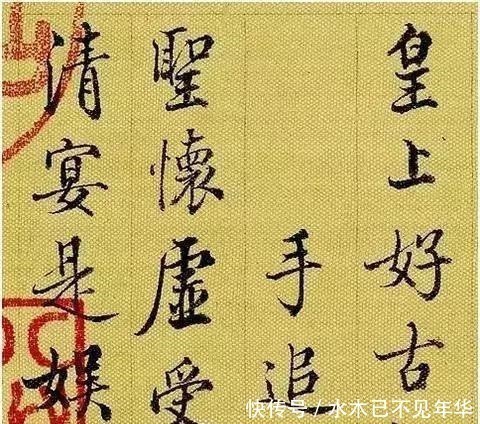 皇上好古
手追
聖懷虛受
清宴是娱
快传号/水木已不见年华